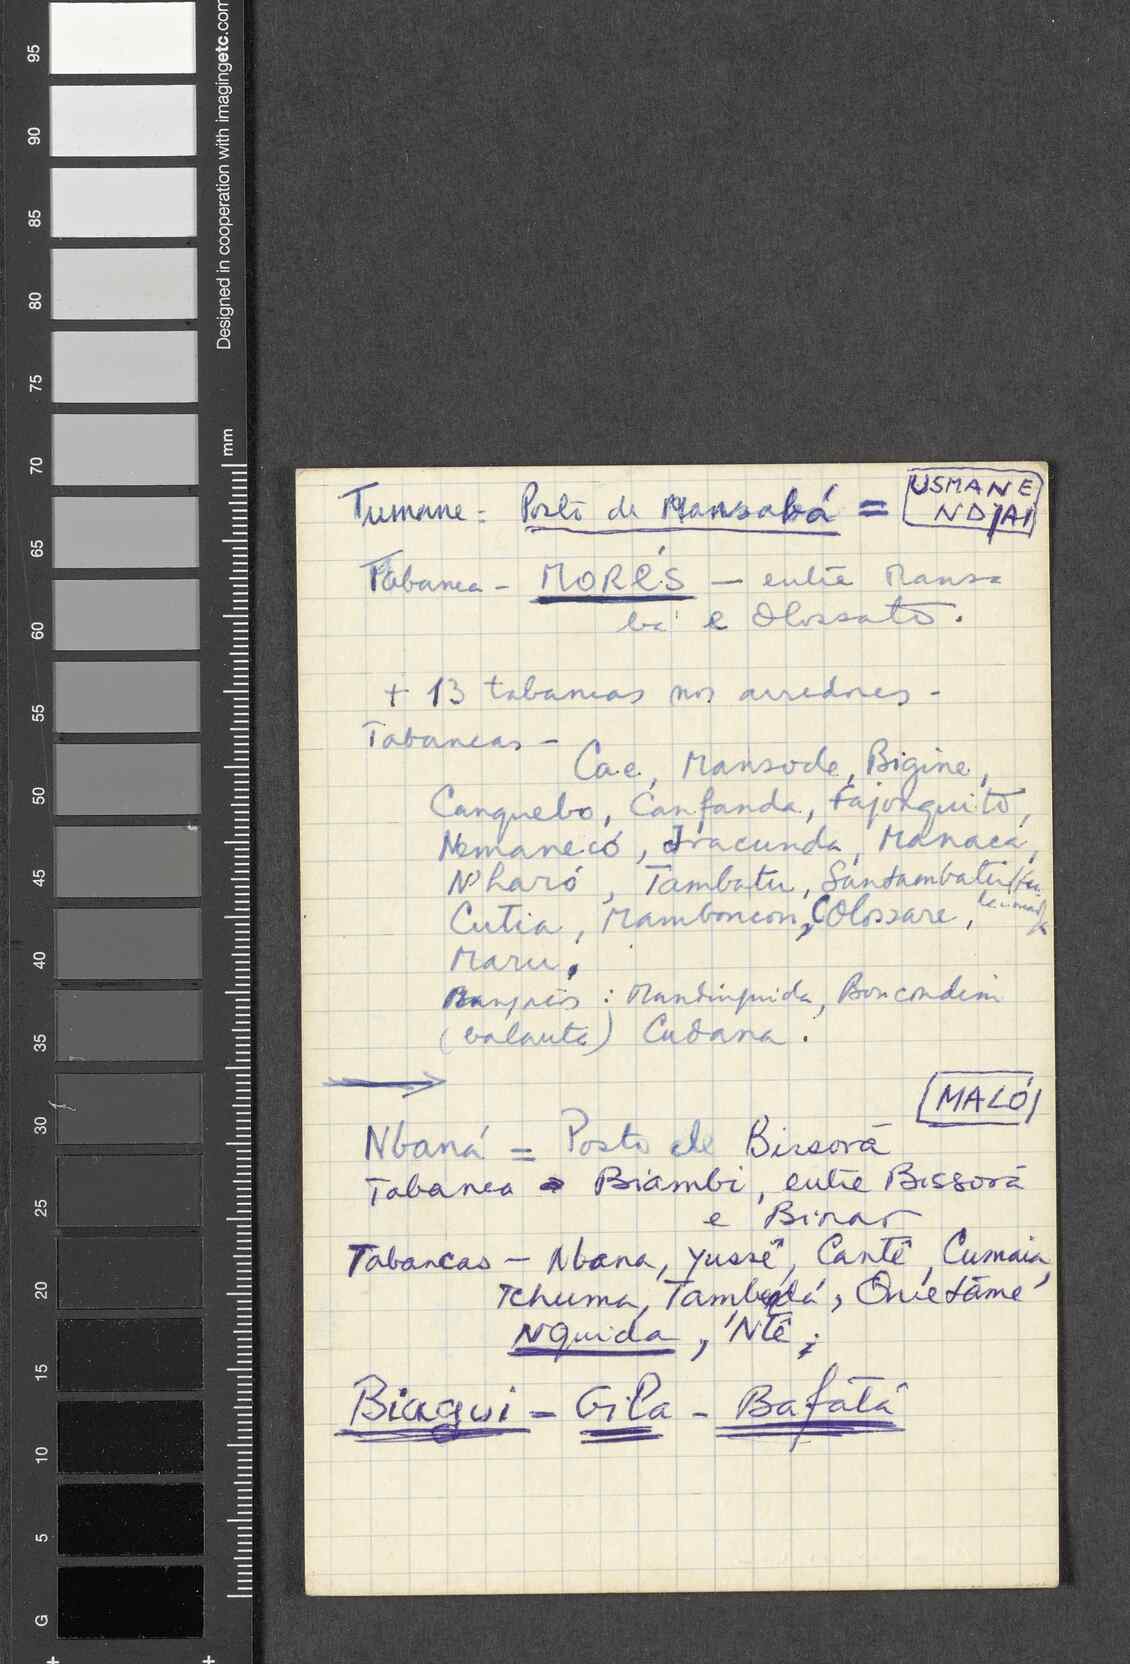 95
90
85
80
75
70
65
60
55
50
45
40
35
30
25
20
15
10
5
G
Designed in cooperation with imagingetc.com
mm
Tumane = Posto de Mansabá = USMANE
NDIAI
Tabanca - MORÉS - entre Mansa
bá e Olossato.
+ 13 tabancas nos arredores -
Tabancas -
Cae, Mansode, Bigine,
Canquebo, Canfanda, Fajonquito,
Nemanecó, Iracunda, Manacá,
N'haró, Tambatu, Santambatu
Cutia, Mamboncon, Colossare,
Maru.
: Mandinguida, Boncondim
(balanta) Cubana.
MALÓ
Nbaná = Posto de Bissorã
Tabanca - Biambi, entre Bissorã
e Binar
Tabancas - Nbana, Yussê, Cantê, Cumaia,
Tchuma, Queitáme
NQuida, 'Ntê;
Biagui - Gila - Bafatá